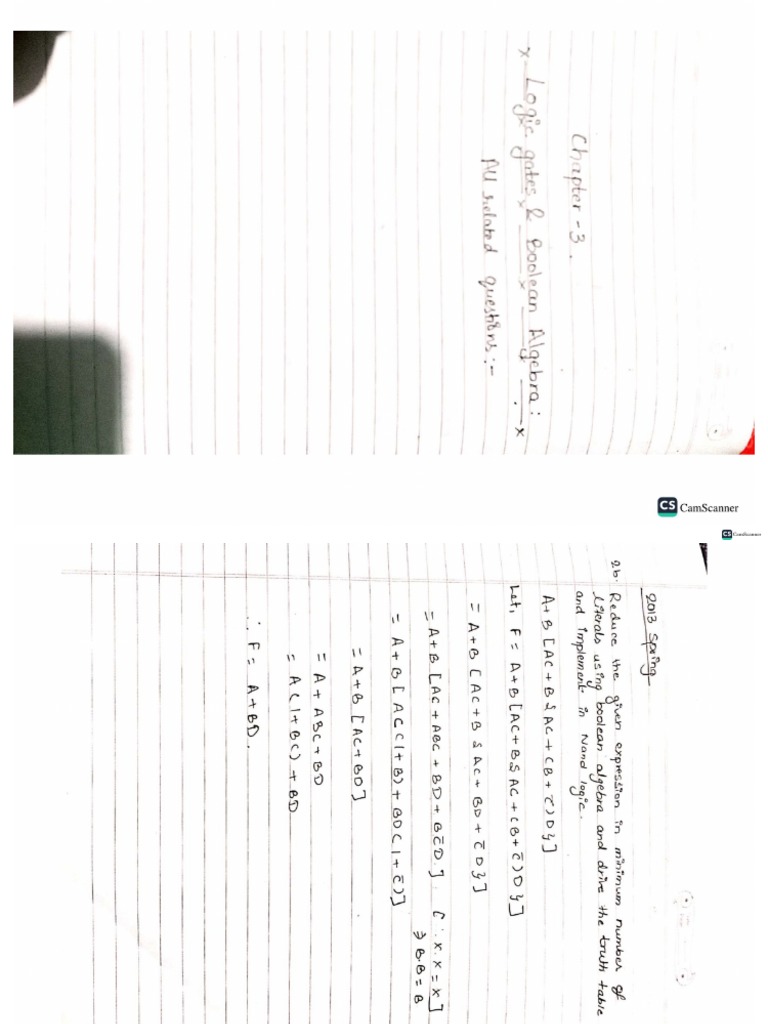 Chapter - 3.
x Logic gates & Boolean Algebra: x
All related questions:-
CS CamScanner
CS CamScanner
2013 Spring
2b. Reduce the given expression in minimum number of
literals using boolean algebra and drive the truth table
and implement in Nand logic.
A+B[AC+B{AC+(B+C̅)D}]
Let, F = A+B[AC+B{AC+(B+C̅)D}]
= A+B[AC+B{AC+BD+C̅D}]
= A+B[AC+ABC+BD+BC̅D.] [∵ x.x=x]
⇒ B.B=B
= A+B[AC(1+B)+BD(1+C̅)]
= A+B[AC+BD]
= A+ABC+BD
= A(1+BC)+BD
∴ F = A+BD.